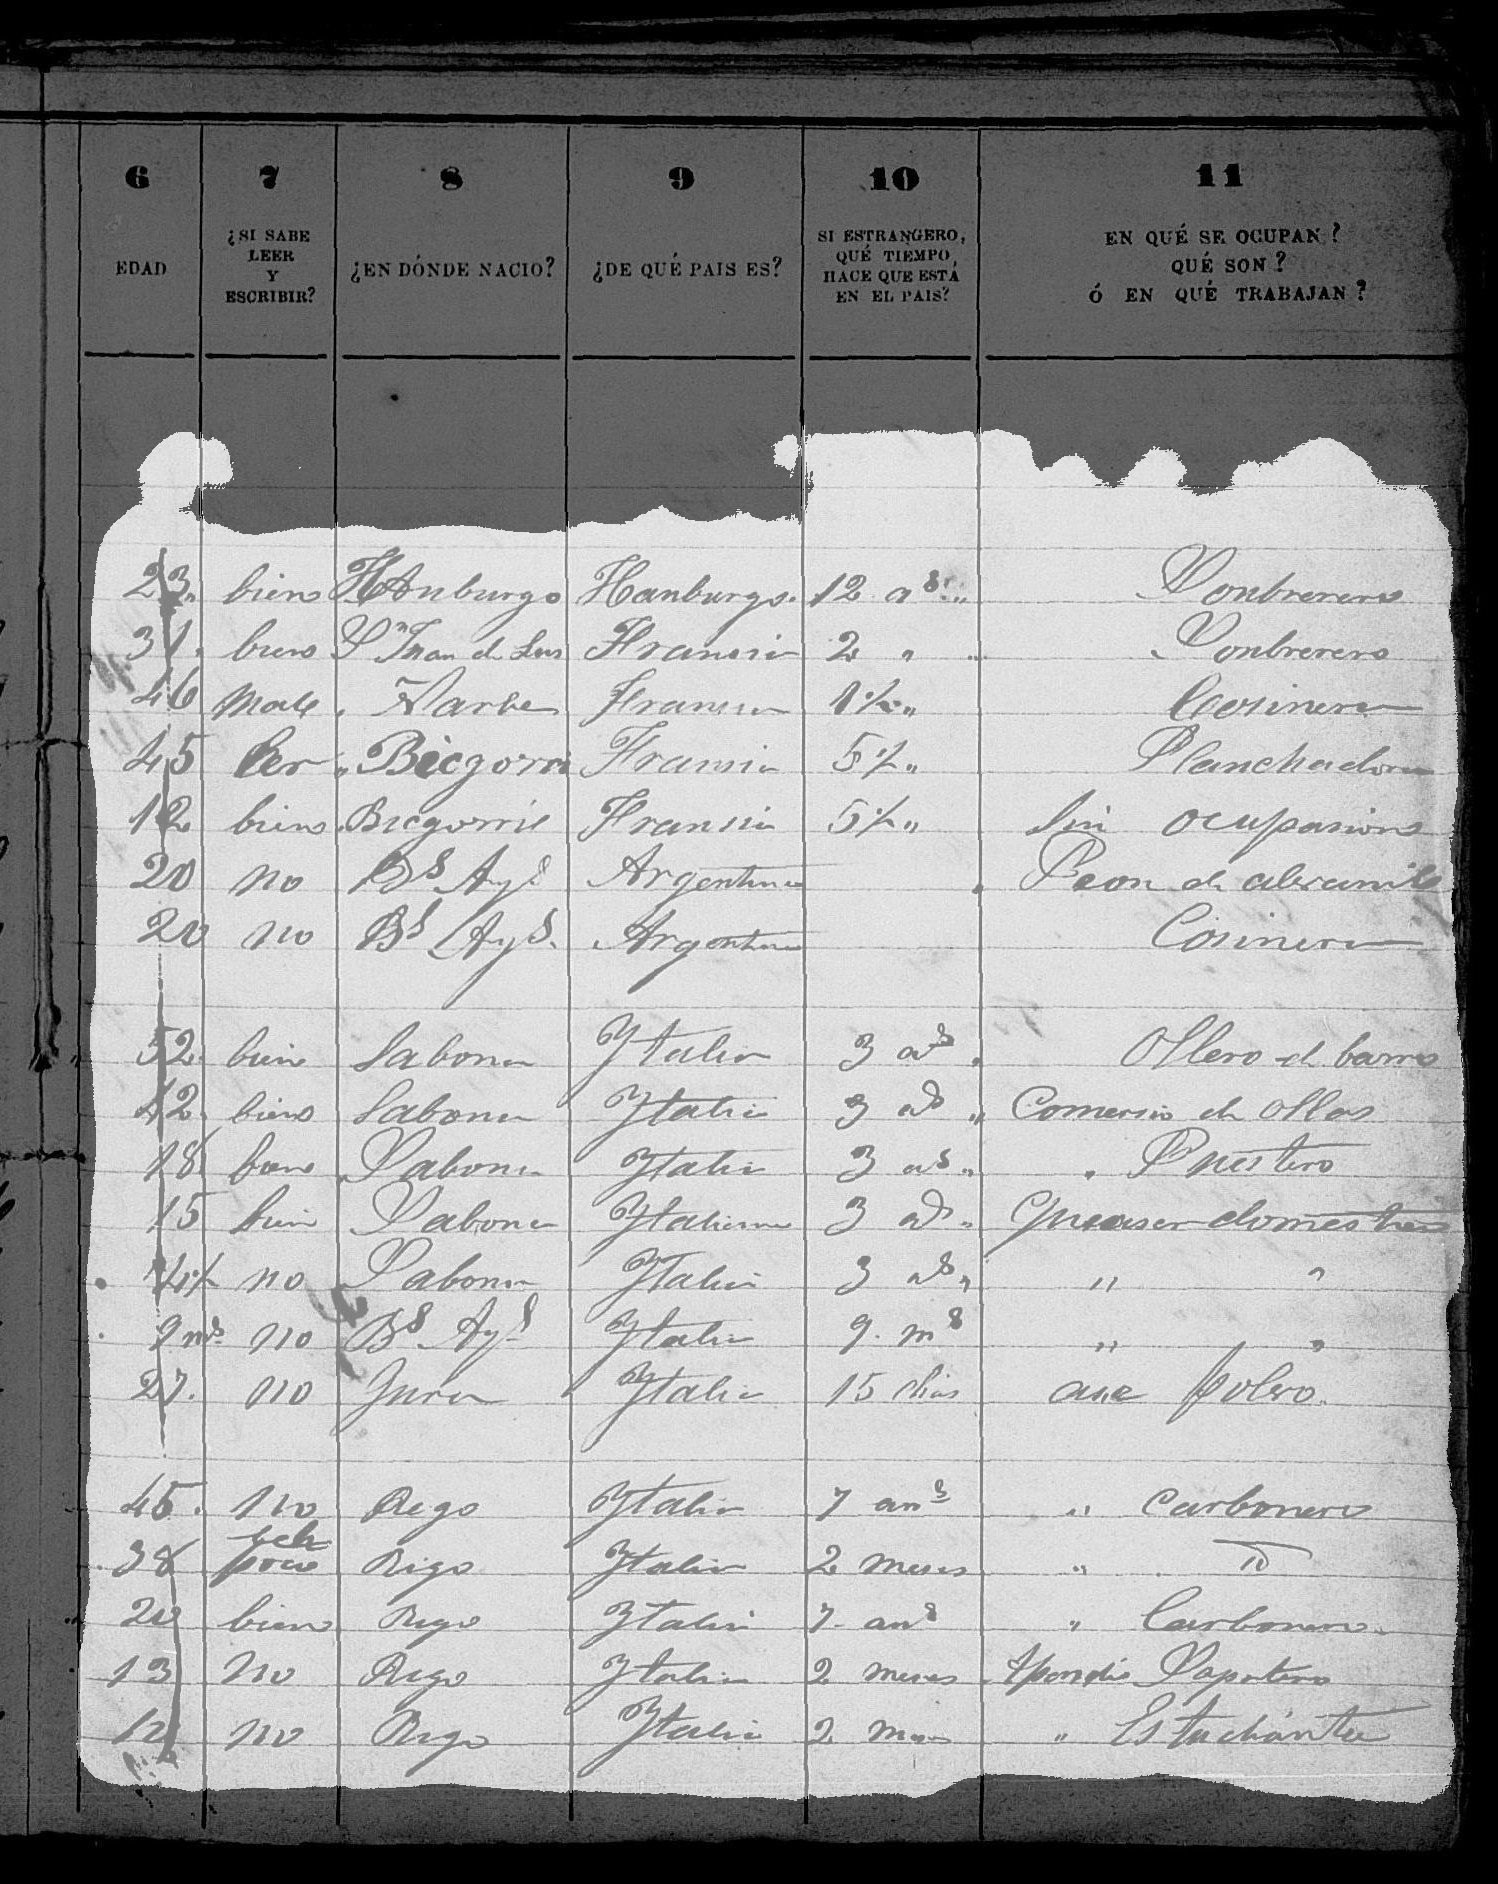 6 7 8 9 10 11
EDAD ¿SI SABE LEER Y ESCRIBIR? ¿EN DÓNDE NACIO? ¿DE QUÉ PAIS ES? SI ESTRANGERO, QUÉ TIEMPO, HACE QUE ESTÁ EN EL PAIS? EN QUÉ SE OCUPAN? QUÉ SON? Ó EN QUÉ TRABAJAN?
23. bien Hanburgo Hanburgo. 12 as. „ Sonbrerero
31. bien Sn Juan de Lus Fransia 2 „ „ Sonbrerero
46 male Fransia 1½ „ Cosinera
45 Ler „ Biegorri Fransia 5½ „ Planchadora
12 bien Biegorrie Fransia 5½ „ Sin ocupasion
20 no Bs Ays Argentina Peon de
20 no Bs Ays. Argentina Cosinera
52. bien Sabona Ytalia 3 as „ Ollero de barro
42. bien Sabona Ytalia 3 as „ Comersio de ollas
18. bien Sabona Ytalia 3 as „ Puestero
15 bien Sabona Ytaliana 3 as „ domestico
4½ no Sabona Ytalia 3 as „ „ „
9 ms no Bs Ays Ytalia 9. ms „ „
27. no Ytalia 15 dias
45. no Rego Ytalia 7 ans „ Carbonero
38 poco Rigo Ytalia 2 meses „ Id
20 bien Rigo Ytalia 7. ans „ Carbonero.
13 no Rigo Ytalia 2 meses Apendis Sapatero
12 no Rigo Ytalia 2 mes „ Estudiante